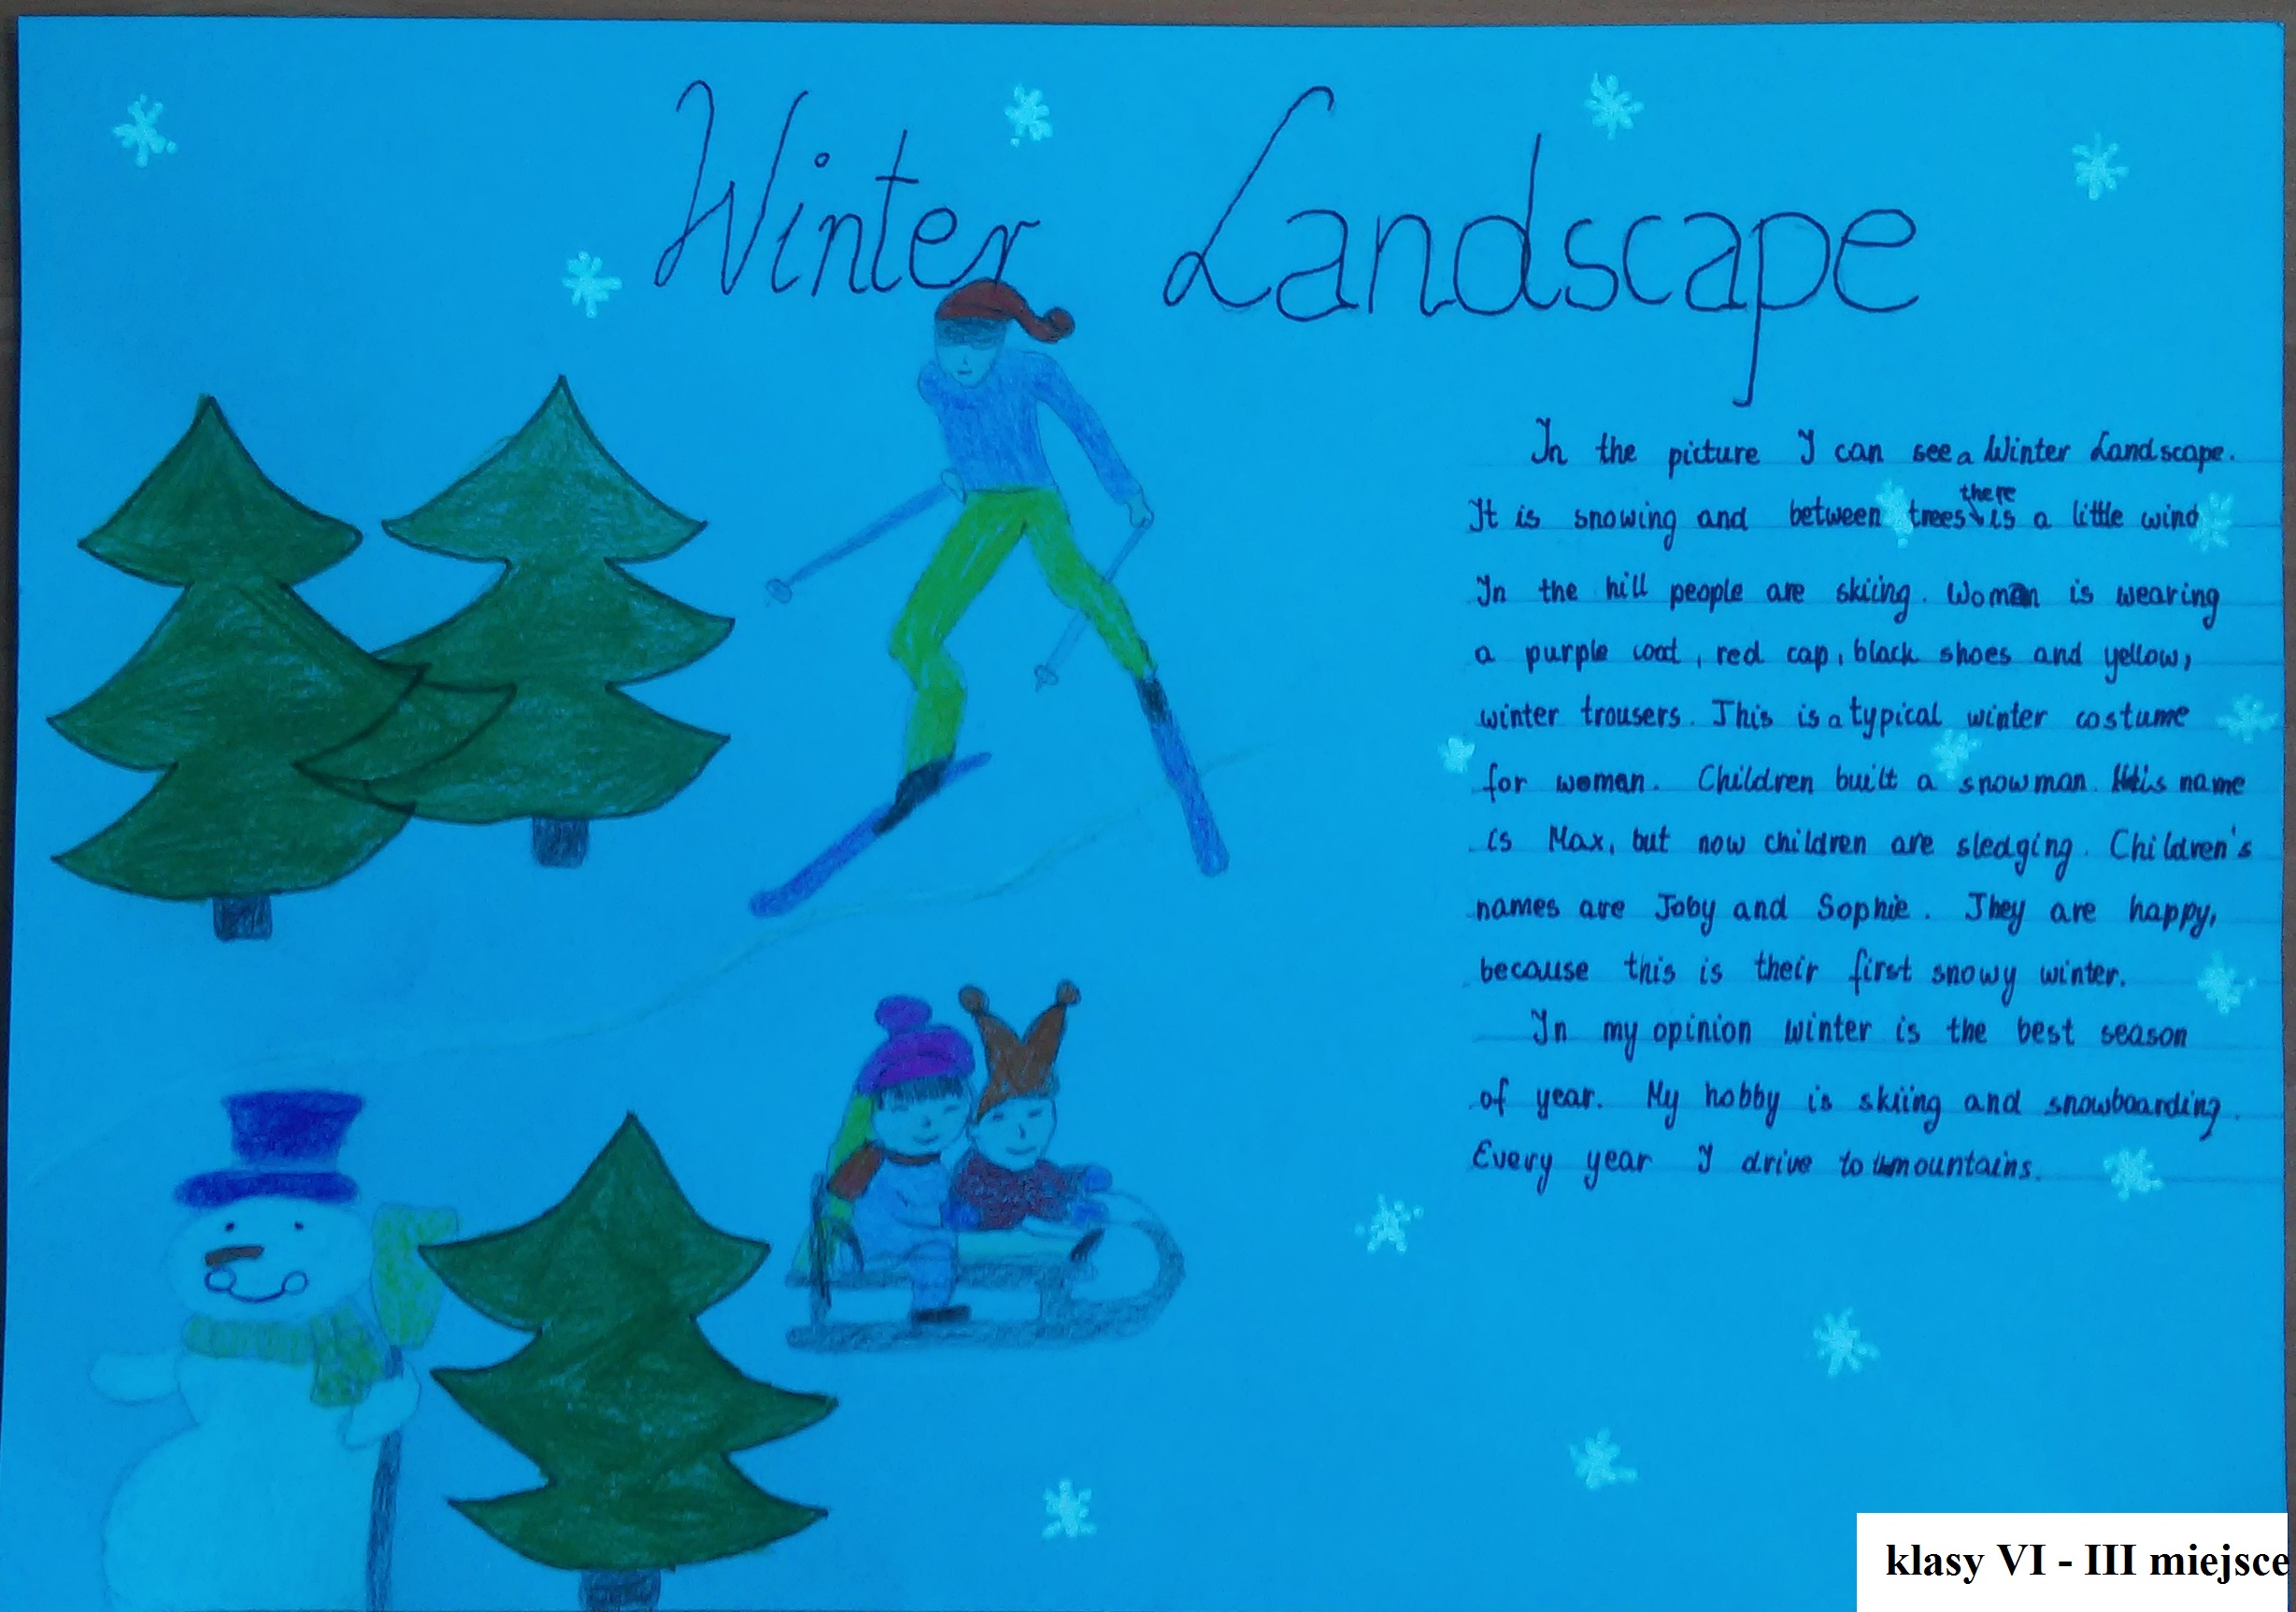 Winter Landscape
In the picture I can see a Winter Landscape.
It is snowing and between trees there is a little wind
In the hill people are skiing. Woman is wearing
a purple coat, red cap, black shoes and yellow,
winter trousers. This is a typical winter costume
for woman. Children built a snowman. His name
is Max, but now children are sledging. Children's
names are Joby and Sophie. They are happy,
because this is their first snowy winter.
In my opinion winter is the best season
of year. My hobby is skiing and snowboarding.
Every year I drive to mountains.
klasy VI - III miejsce